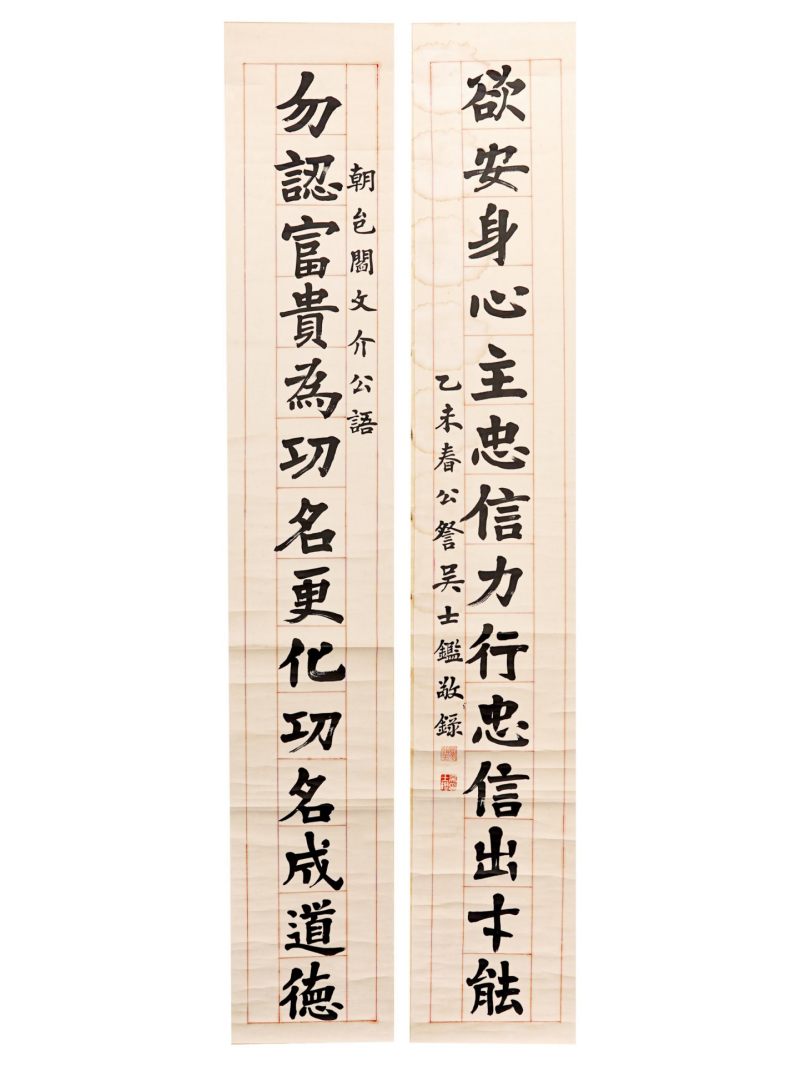 欲安身心主忠信力行忠信出才能
乙未春公詧吳士鑑敬録
朝邑閻文介公語
勿認富貴為功名更化功名成道徳